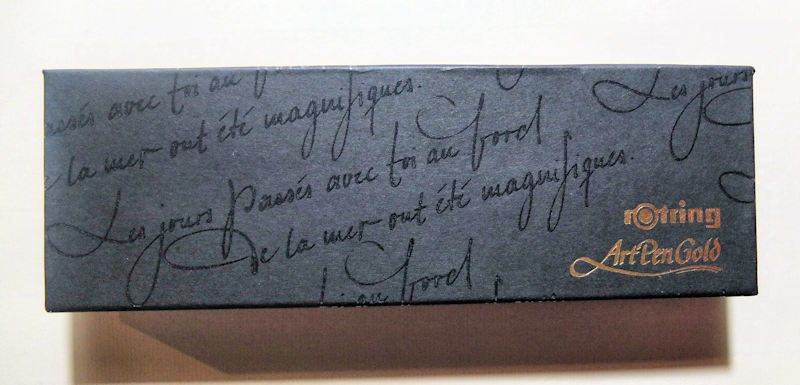 passés avec toi au
de la mer ont été magnifiques.
Les jours
Les jours passés avec toi au bord
de la mer ont été magnifiques.
toi au bord
rotring
ArtPen Gold